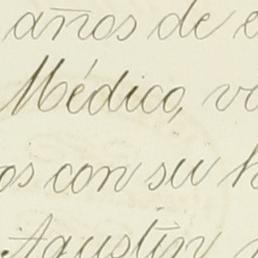 años de
Médico,
con su
Agustín